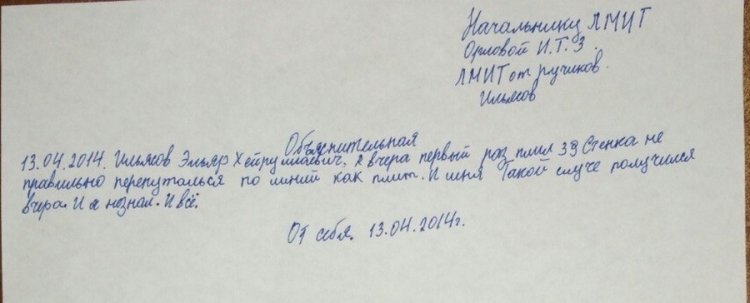 Начальнику ЛМИТ
Орловой И.Т.З.
ЛМИТ от ручиков.
Ильясов
Объяснительная
13.04.2014. Ильясов Эльяр Хейруллаевич. Я вчера первый раз плил 39 Стенка не
правильно перепуталься по линий как плит. И меня Такой случе получился
вчера. И я незнал. И всё.
От себя. 13.04.2014г.